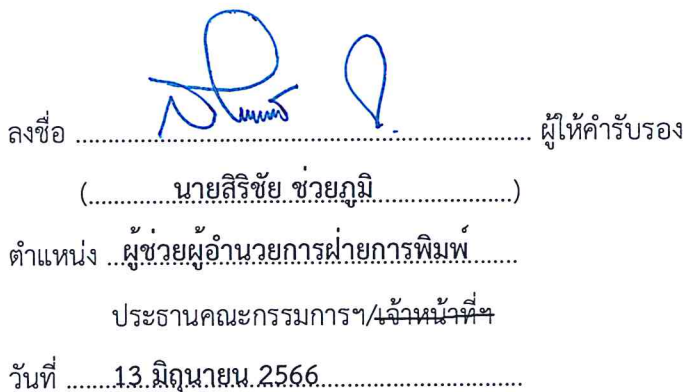 ลงชื่อ ........................................................................ ผู้ให้คำรับรอง
(................นายสิริชัย ช่วยภูมิ...........................)
ตำแหน่ง ...ผู้ช่วยผู้อำนวยการฝ่ายการพิมพ์.........
ประธานคณะกรรมการฯ/เจ้าหน้าที่ฯ
วันที่ .........13 มิถุนายน 2566.....................................